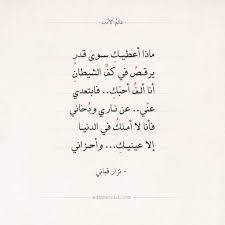 عالم الأدب
ماذا أعطيكِ سوى قدرٍ
يرقصُ في كفِّ الشيطانِ
أنا ألفُ أحبّكِ.. فابتعدي
عنّي.. عن ناري ودُخاني
فأنا لا أملكُ في الدنيا
إلا عينيكِ... وأحزاني
- نزار قباني
adabworld.com